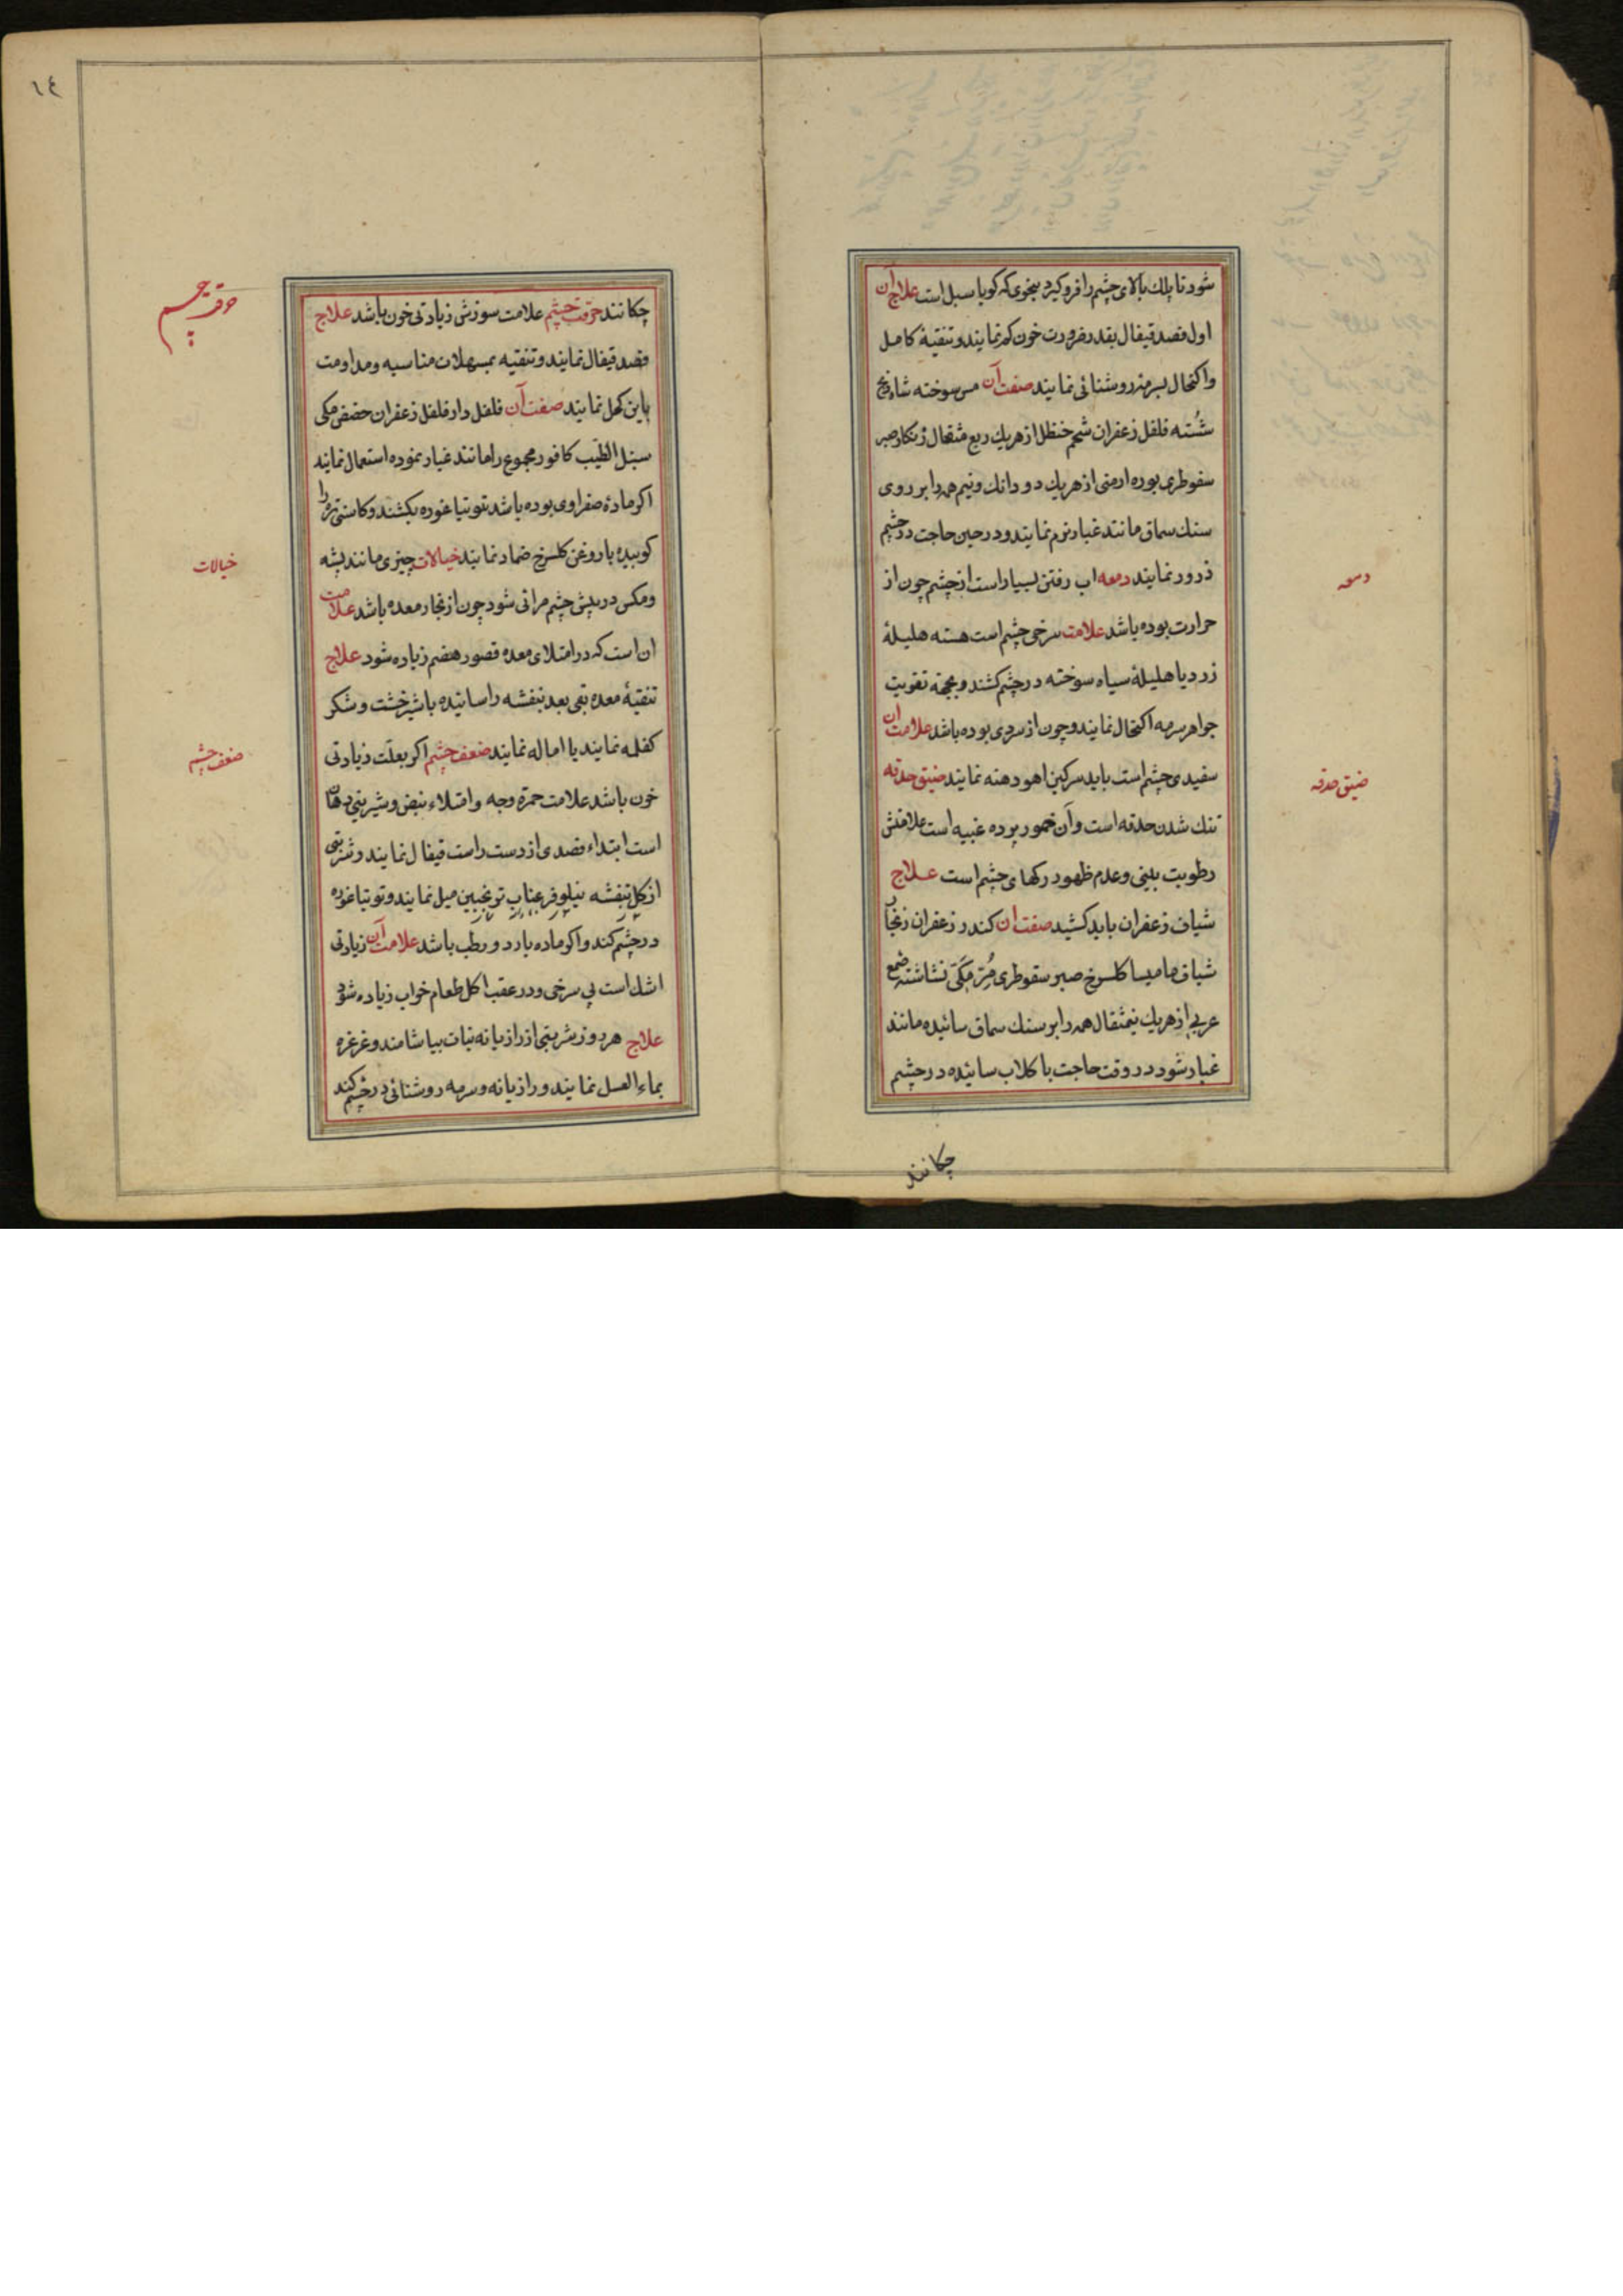 شود تا پلك بالای چشم را فرو کیرد بنحوی که کویا سبل است علاج آن
اول فصد قیفال بقدر ضرورت خون کم نمایند و تنقیهٔ کامل
واکتحال بسرمهٔ روشنائی نمایند صفت آن مس سوخته شادنج
شُسته فلفل زعفران شحم حنظل از هریك ربع مثقال زنکار صبر
سقوطری بوره ارمنی از هریك دو دانك ونیم همه را بر روی
سنك سماق مانند غبار نرم نمایند و در حین حاجت در چشم
ذرور نمایند دمعه اب رفتن بسیار است از چشم چون از
حرارت بوده باشد علامت سرخی چشم است هسته هلیلهٔ
زرد یا هلیلهٔ سیاه سوخته در چشم کشند و بجهة تقویت
جواهر سرمه اکتحال نمایند و چون از سردی بوده باشد علامت ان
سفیدی چشم است باید سرکین اهو دهنه نمایند ضیق حدقه
تنك شدن حدقه است وآن خمور پرده عنبیه است علامتش
رطوبت بینی وعدم ظهور رکهای چشم است علاج
شیاف زعفران باید کشید صفت ان کندر زعفران زنجار
شیاف مامیسا کلسرخ صبر سقوطری مُرّ مَکّی نشاشته صمغ
عربی از هریك نیمثقال همه را بر سنك سماق سائیده مانند
غبار شود در وقت حاجت با کلاب سائیده در چشم
چکانند
دمعه
ضیق حدقه
١٤
چکانند حرقت چشم علامت سوزش زیادتی خون باشد علاج
فصد قیفال نمایند و تنقیه بمسهلات مناسبه ومداومت
باین کحل نمایند صفت آن فلفل دارفلفل زعفران حضض مکی
سنبل الطّیب کافور مجموع را مانند غبار نموده استعمال نمایند
اکر مادهٔ صفراوی بوده باشد توتیا غوره بکشند و کاسنی تره را
کوبیده با روغن کلسرخ ضماد نمایند خیالات چیزی مانند پشه
ومکس در پیش چشم مرائی شود چون از بخار معده باشد علامت
ان است که در امتلای معده قصور هضم زیاده شود علاج
تنقیهٔ معده بقی بعد بنفشه را سائیده با شیرخشت و شکر
کفلمه نمایند یا اماله نمایند ضعف چشم اکر بعلّت زیادتی
خون باشد علامت حمرّة وجه وامتلاء نبض وشیرینی دهان
است ابتداء فصدی از دست راست قیفال نمایند و شربتی
از کل بنفشه نیلوفر عناب ترنجبین میل نمایند و توتیا غوره
در چشم کند و اکر ماده بارد و رطب باشد علامت آن زیادتی
اشك است بی سرخی و در عقب اکل طعام خواب زیاده شود
علاج هر روز شربتی از رازیانه نبات بیاشامند و غرغره
بماء العسل نمایند و رازیانه وسرمه روشنائی در چشم کند
حرقت چشم
خیالات
ضعف چشم